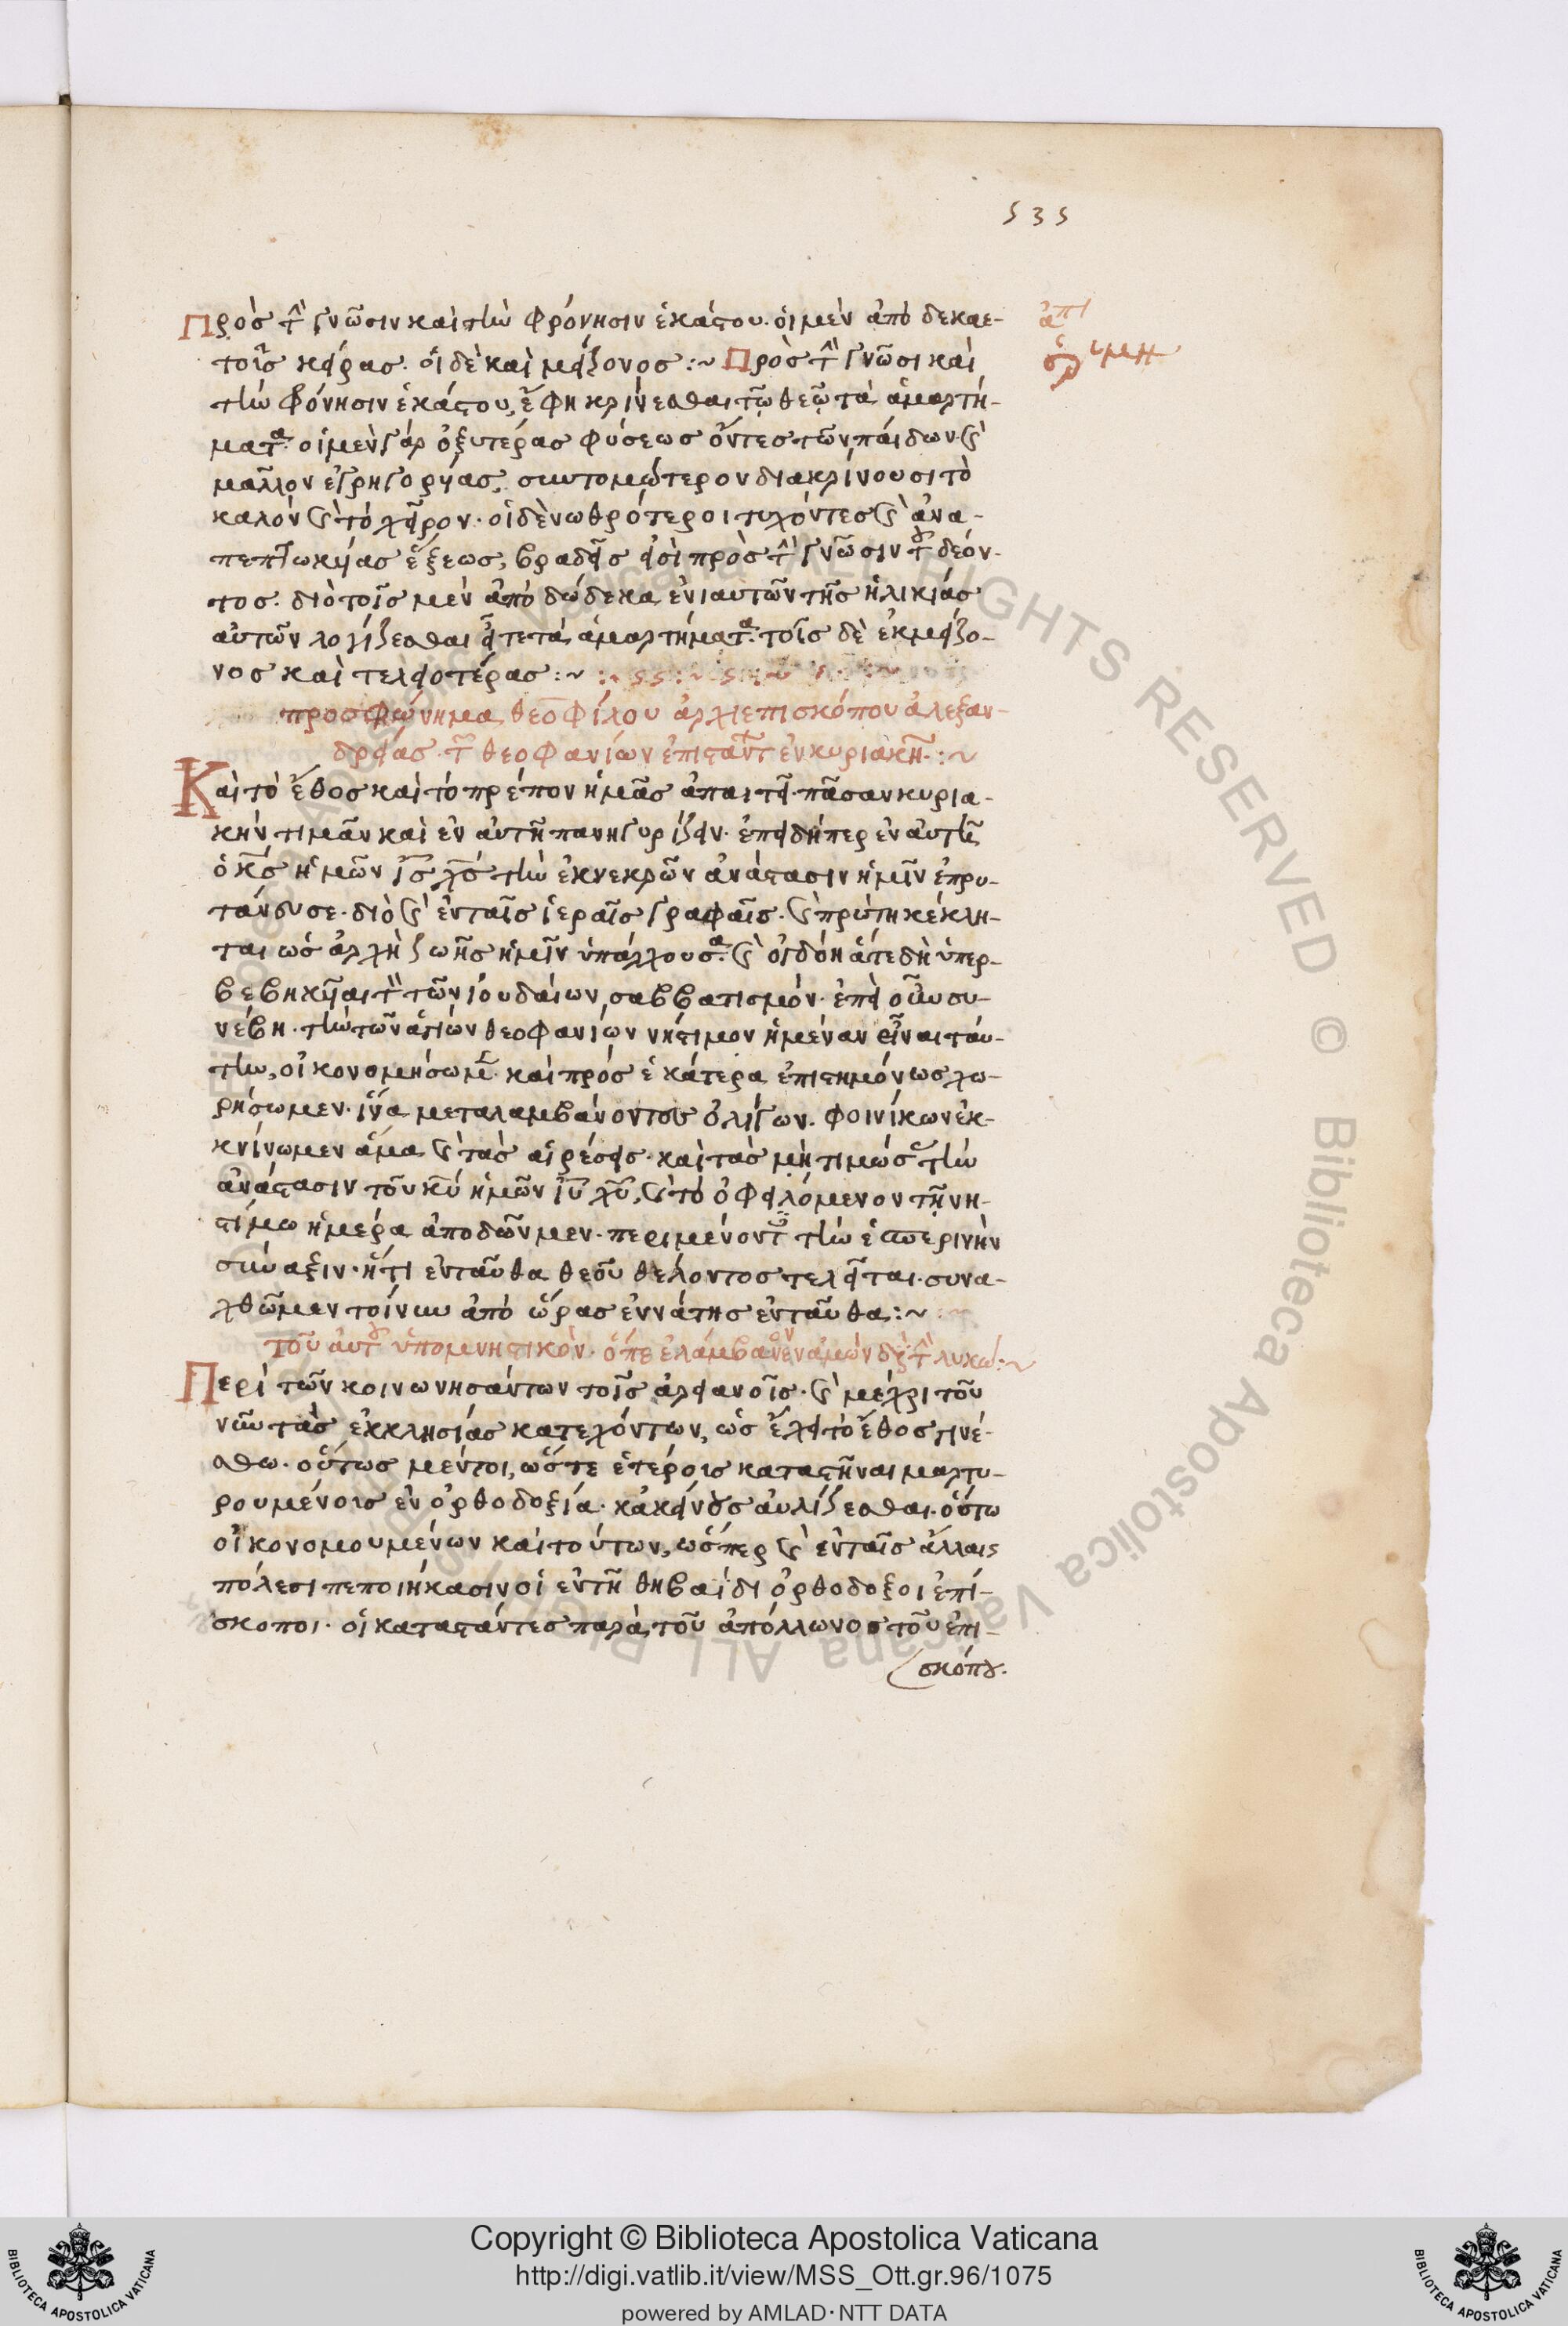 535
Πρὸς τὴν γνῶσιν καὶ τὴν φρόνησιν ἑκάστου. οἱ μὲν ἀπὸ δεκαε-
τοῦς καίρας. οἱ δὲ καὶ μείζονος :~ Πρὸς τὴν γνῶσι καὶ
τὴν φόνησιν ἑκάστου, ἔφη κρίνεσθαι τῷ θεῷ τὰ ἁμαρτή-
ματα. οἱ μὲν γὰρ ὀξυτέρας φύσεως ὄντες τῶν παίδων καὶ
μᾶλλον ἐγρηγορυίας, συντομώτερον διακρίνουσι τὸ
καλὸν καὶ τὸ χεῖρον. οἱ δὲ νωθρότεροι τυχόντες καὶ ἀνα-
πεπτωκυίας ἕξεως, βραδεῖς εἰσὶ πρὸς τὴν γνῶσιν τοῦ δέον-
τος. διὸ τοῖς μὲν ἀπὸ δώδεκα ἐνιαυτῶν τῆς ἡλικίας
αὐτῶν λογίζεσθαι εἴτε τὰ ἁμαρτήματα. τοῖς δὲ ἐκ μείζο-
νος καὶ τελειοτέρας :~
προσφώνημα θεοφίλου ἀρχιεπισκόπου ἀλεξαν-
δρείας. τῶν θεοφανίων ἐπιστάντων ἐν κυριακῇ. :~
Καὶ τὸ ἔθος καὶ τὸ πρέπον ἡμᾶς ἀπαιτεῖ. πᾶσαν κυρια-
κὴν τιμᾶν καὶ ἐν αὐτῇ πανηγυρίζειν. ἐπειδήπερ ἐν αὐτῇ
ὁ κς ἡμῶν ις χς τὴν ἐκ νεκρῶν ἀνάστασιν ἡμῖν ἐπρυ-
τάνευσε. διὸ καὶ ἐν ταῖς ἱεραῖς γραφαῖς. καὶ πρώτη κέκλη-
ται ὡς ἀρχὴ ζωῆς ἡμῖν ὑπάρχουσα. καὶ ὀγδόη ἅτε δὴ ὑπερ-
βεβηκυῖαι τὸν τῶν ἰουδαίων σαββατισμόν. ἐπεὶ οὖν συ-
νέβη. τὴν τῶν ἁγίων θεοφανίων νήστιμον ἡμέραν εἶναι ταύ-
την, οἰκονομήσωμεν. καὶ πρὸς ἑκάτερα ἐπιστημόνως χω-
ρήσωμεν. ἵνα μεταλαμβάνοντες ὀλίγων. φοινίκων ἐκ-
κνίνωμεν ἅμα καὶ τὰς αἱρέσεις. καὶ τὰς μὴ τιμώσας τὴν
ἀνάστασιν τοῦ κυ ἡμῶν ιυ χυ, καὶ τὸ ὀφειλόμενον τῇ νη-
στίμω ἡμέρα ἀποδῶνμεν. περιμένοντες τὴν ἑσπερινὴν
σύναξιν. ἥτι ἐνταῦθα θεοῦ θέλοντος τελεῖται. συνα-
χθῶμεν τοίνυν ἀπὸ ὥρας ἐννάτης ἐνταῦθα :~
τοῦ αὐτοῦ ὑπομνηστικὸν. ὅπερ ἐλάμβανεν ἀμμὼν διὰ τὴν λυκώ :~
Περὶ τῶν κοινωνησάντων τοῖς ἀρειανοῖς. καὶ μέχρι τοῦ
νῦν τὰς ἐκκλησίας κατεχόντων, ὡς ἔχει τὸ ἔθος γινέ-
σθω. οὕτως μέντοι, ὥστε ἑτέροις καταστῆναι μαρτυ-
ρουμένοις ἐν ὀρθοδοξία. κἀκείνους αὐλίζεσθαι. οὕτω
οἰκονομουμένων καὶ τούτων, ὥσπερ καὶ ἐν ταῖς ἄλλαις
πόλεσι πεποιήκασιν οἱ ἐν τῇ θηβαίδι ὀρθοδοξοι ἐπί-
σκοποι. οἱ καταστάντες παρὰ τοῦ ἀπόλλωνος τοῦ ἐπι-
σκόπου.
Copyright © Biblioteca Apostolica Vaticana
http://digi.vatlib.it/view/MSS_Ott.gr.96/1075
powered by AMLAD·NTT DATA
BIBLIOTECA APOSTOLICA VATICANA
BIBLIOTECA APOSTOLICA VATICANA